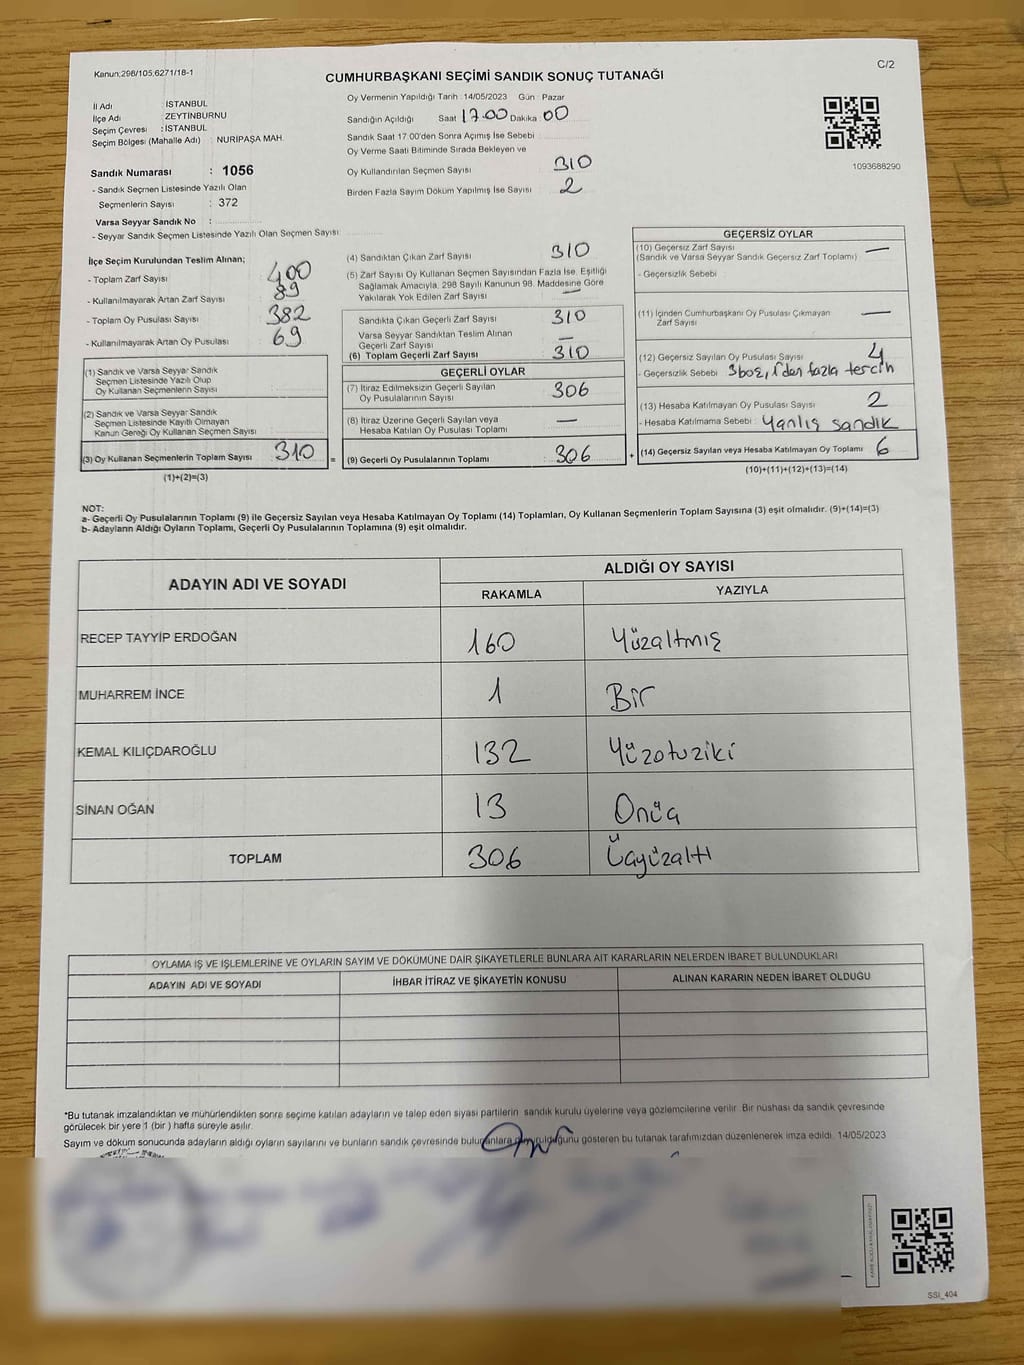 Kanun:298/105,6271/18-1
C/2
CUMHURBAŞKANI SEÇİMİ SANDIK SONUÇ TUTANAĞI
İl Adı : İSTANBUL
İlçe Adı : ZEYTİNBURNU
Seçim Çevresi : İSTANBUL
Seçim Bölgesi (Mahalle Adı) : NURİPAŞA MAH.
Sandık Numarası : 1056
- Sandık Seçmen Listesinde Yazılı Olan
Seçmenlerin Sayısı : 372
Varsa Seyyar Sandık No :
- Seyyar Sandık Seçmen Listesinde Yazılı Olan Seçmen Sayısı:
Oy Vermenin Yapıldığı Tarih :14/05/2023 Gün : Pazar
Sandığın Açıldığı Saat 17.00 Dakika 00
Sandık Saat 17.00'den Sonra Açımış İse Sebebi
Oy Verme Saati Bitiminde Sırada Bekleyen ve
Oy Kullandırılan Seçmen Sayısı 310
Birden Fazla Sayım Döküm Yapılmış İse Sayısı 2
1093688290
İlçe Seçim Kurulundan Teslim Alınan;
- Toplam Zarf Sayısı : 400
- Kullanılmayarak Artan Zarf Sayısı : 89
- Toplam Oy Pusulası Sayısı : 382
- Kullanılmayarak Artan Oy Pusulası : 69
(1) Sandık ve Varsa Seyyar Sandık
Seçmen Listesinde Yazılı Olup
Oy Kullanan Seçmenlerin Sayısı
(2) Sandık ve Varsa Seyyar Sandık
Seçmen Listesinde Kayıtlı Olmayan
Kanun Gereği Oy Kullanan Seçmen Sayısı
(3) Oy Kullanan Seçmenlerin Toplam Sayısı : 310
(1)+(2)=(3)
=
(4) Sandıktan Çıkan Zarf Sayısı 310
(5) Zarf Sayısı Oy Kullanan Seçmen Sayısından Fazla İse, Eşitliği
Sağlamak Amacıyla, 298 Sayılı Kanunun 98. Maddesine Göre
Yakılarak Yok Edilen Zarf Sayısı —
Sandıkta Çıkan Geçerli Zarf Sayısı 310
Varsa Seyyar Sandıktan Teslim Alınan
Geçerli Zarf Sayısı —
(6) Toplam Geçerli Zarf Sayısı 310
GEÇERLİ OYLAR
(7) İtiraz Edilmeksizin Geçerli Sayılan
Oy Pusulalarının Sayısı 306
(8) İtiraz Üzerine Geçerli Sayılan veya
Hesaba Katılan Oy Pusulası Toplamı —
(9) Geçerli Oy Pusulalarının Toplamı : 306
+
GEÇERSİZ OYLAR
(10) Geçersiz Zarf Sayısı
(Sandık ve Varsa Seyyar Sandık Geçersiz Zarf Toplamı) —
- Geçersizlik Sebebi :
(11) İçinden Cumhurbaşkanı Oy Pusulası Çıkmayan
Zarf Sayısı —
(12) Geçersiz Sayılan Oy Pusulası Sayısı 4
- Geçersizlik Sebebi : 3boş, 1'den fazla tercih
(13) Hesaba Katılmayan Oy Pusulası Sayısı 2
- Hesaba Katılmama Sebebi : Yanlış sandık
(14) Geçersiz Sayılan veya Hesaba Katılmayan Oy Toplamı 6
(10)+(11)+(12)+(13)=(14)
NOT:
a- Geçerli Oy Pusulalarının Toplamı (9) ile Geçersiz Sayılan veya Hesaba Katılmayan Oy Toplamı (14) Toplamları, Oy Kullanan Seçmenlerin Toplam Sayısına (3) eşit olmalıdır. (9)+(14)=(3)
b- Adayların Aldığı Oyların Toplamı, Geçerli Oy Pusulalarının Toplamına (9) eşit olmalıdır.
ADAYIN ADI VE SOYADI
ALDIĞI OY SAYISI
RAKAMLA YAZIYLA
RECEP TAYYİP ERDOĞAN 160 Yüzaltmış
MUHARREM İNCE 1 Bir
KEMAL KILIÇDAROĞLU 132 Yüzotuziki
SİNAN OĞAN 13 Onüç
TOPLAM 306 Üçyüzaltı
OYLAMA İŞ VE İŞLEMLERİNE VE OYLARIN SAYIM VE DÖKÜMÜNE DAİR ŞİKAYETLERLE BUNLARA AİT KARARLARIN NELERDEN İBARET BULUNDUKLARI
ADAYIN ADI VE SOYADI İHBAR İTİRAZ VE ŞİKAYETİN KONUSU ALINAN KARARIN NEDEN İBARET OLDUĞU
*Bu tutanak imzalandıktan ve mühürlendikten sonra seçime katılan adayların ve talep eden siyasi partilerin sandık kurulu üyelerine veya gözlemcilerine verilir. Bir nüshası da sandık çevresinde
görülecek bir yere 1 (bir ) hafta süreyle asılır.
Sayım ve döküm sonucunda adayların aldığı oyların sayılarını ve bunların sandık çevresinde gösteren bu tutanak tarafımızdan düzenlenerek imza edildi. 14/05/2023
SSİ_404